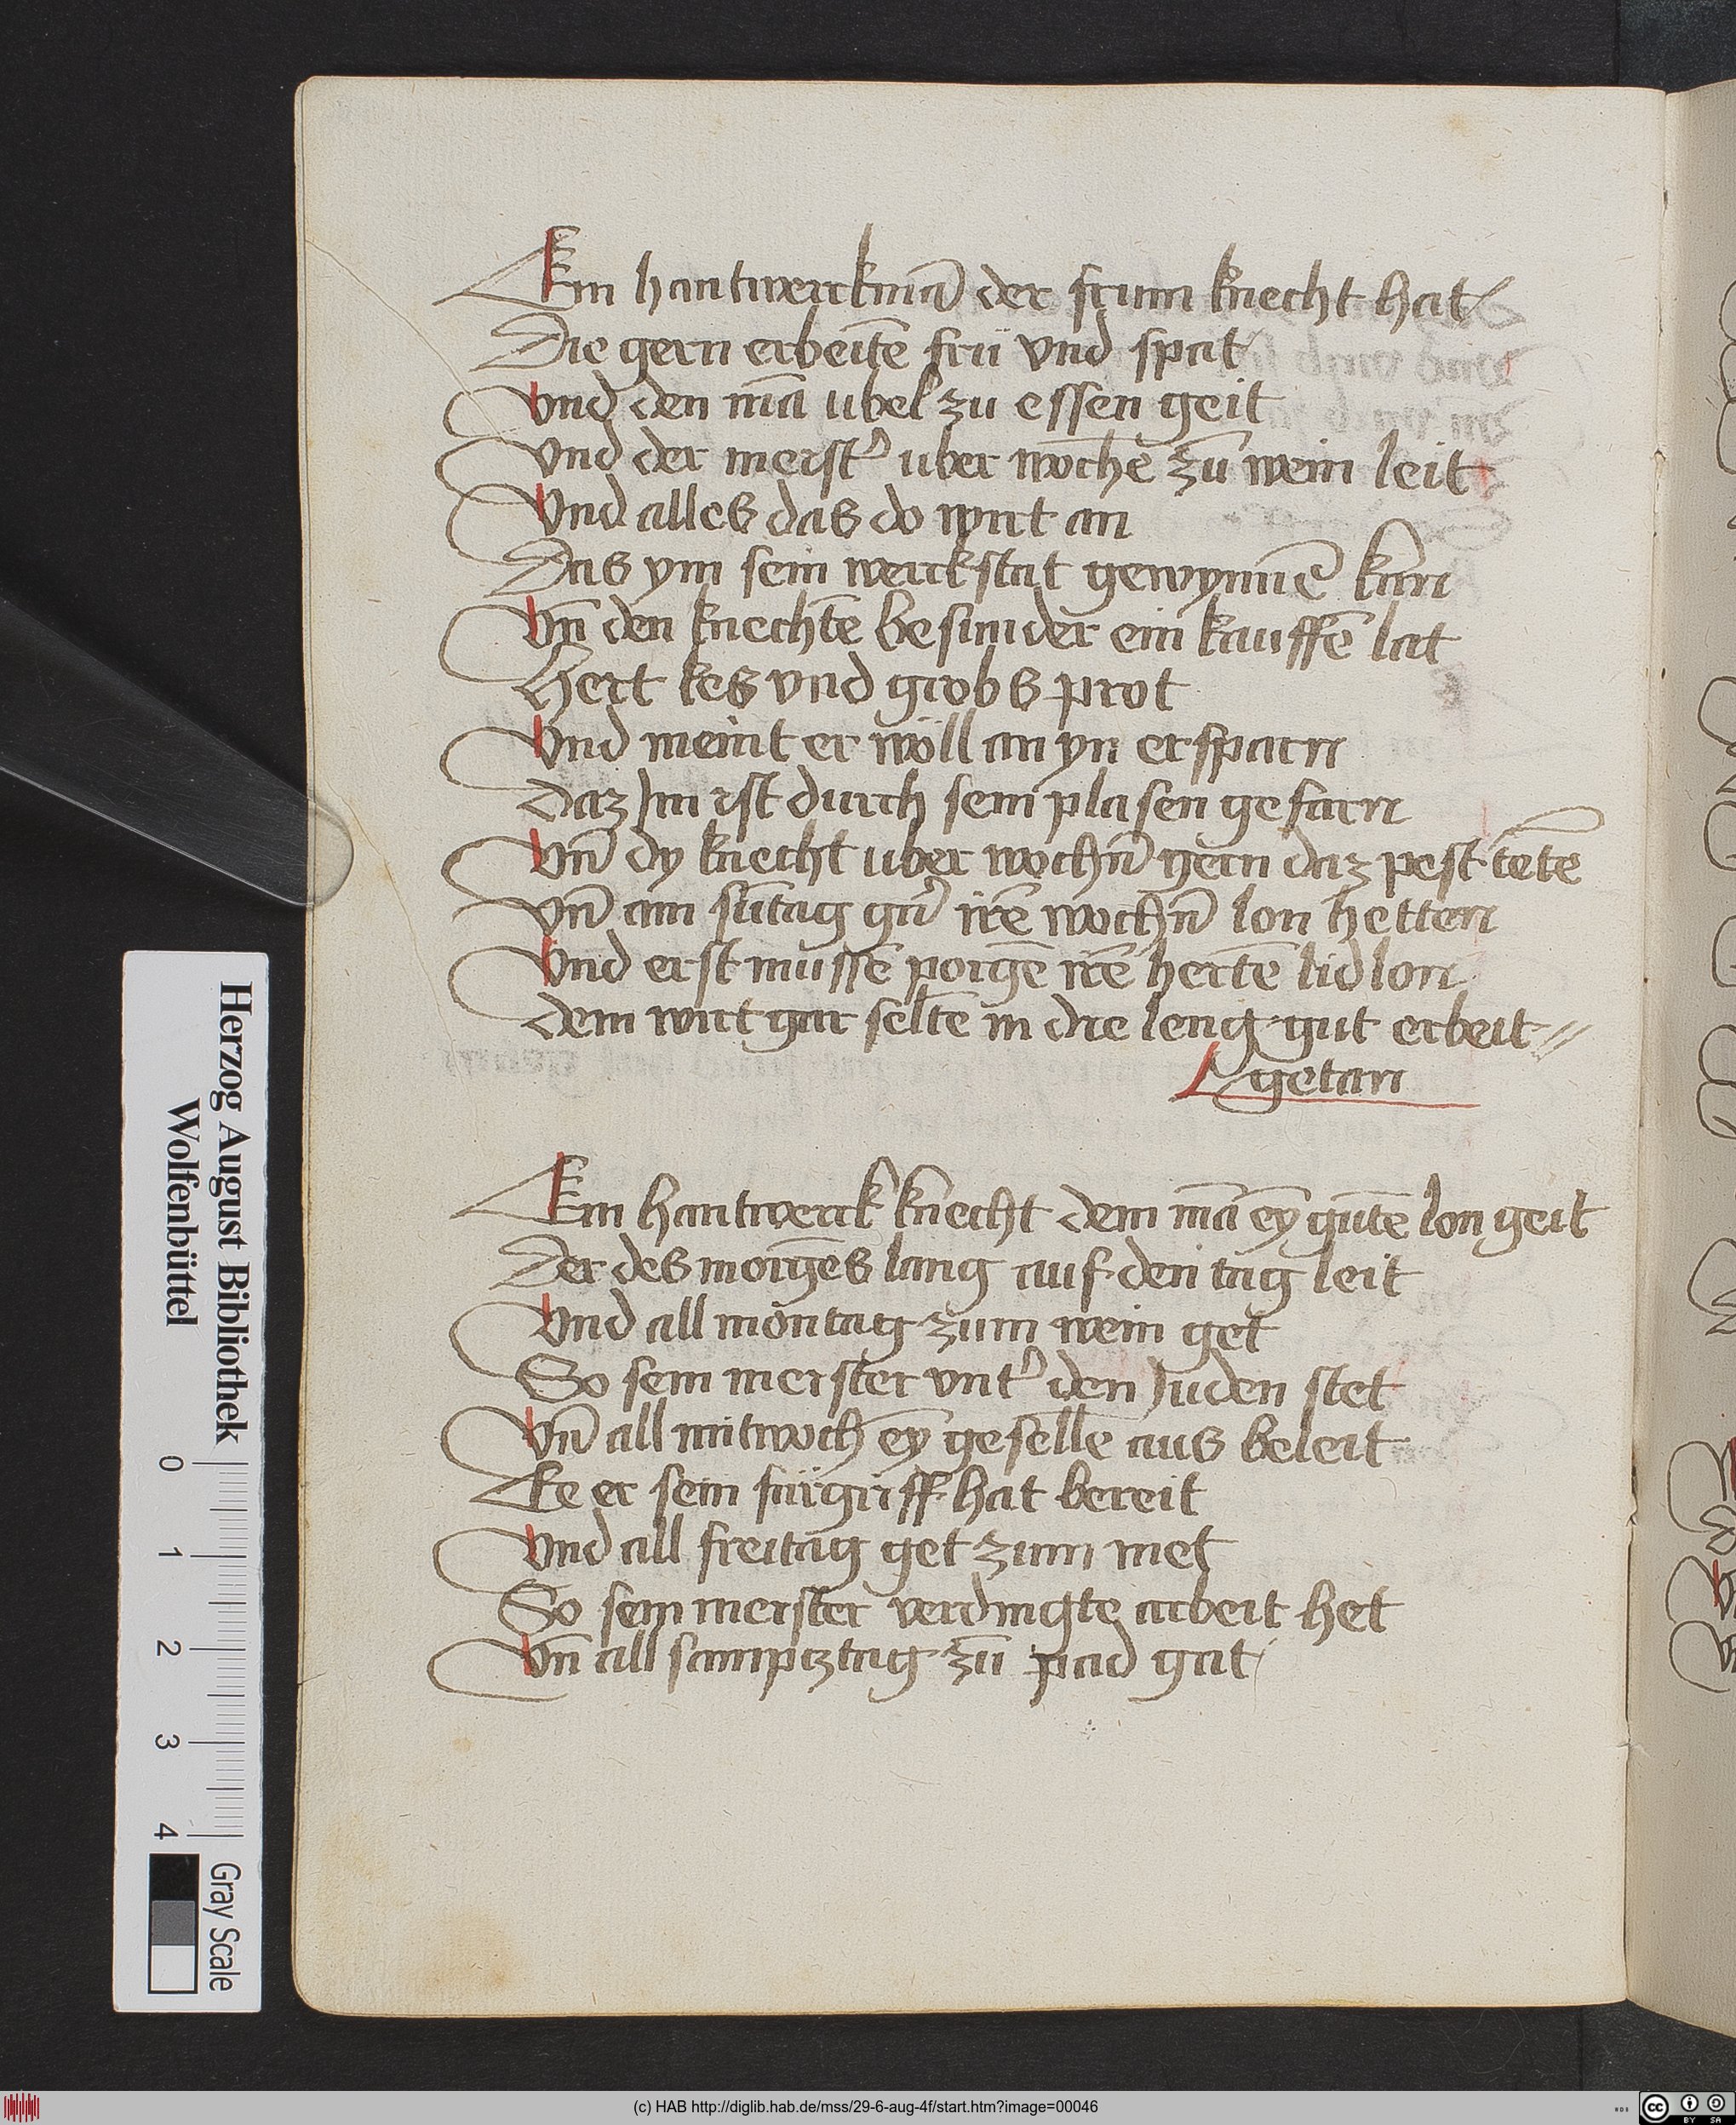 Ein hantwerckmā der frum knecht hat
Die gern erbeitē frü vnd spat
Vnd den mā ubel zu essen geit
Vnd der meistˀ uber wochē zū wein leit
Vnd alles das do wirt an
Das ym sein werckstat gewynnē kan
Vn̄ den knechtē besunder ein kauffē lat
Hert kes vnd grobs prot
Vnd meint er wöll an yn ersparn
Daz Im ist durch sein plasen gefarn
Vn̄ dy knecht uber wochn̄ gern daz pest tetē
Vn̄ am sūtag gn̄ irē wochn̄ lon hetten
Vnd erst mussē porgē irē hertē lidlon
Dem wirt gar seltē in die leng gut erbeit
getan
Ein hantwerck knecht dem mā ey gutē lon geit
Der des morgēs lang auf den tag leit
Vnd all montag zum wein get
So sein meister vntˀ den Juden stet
Vn̄ all mitwoch ey gesellē aus beleit
Ee er sein fürgriff hat bereit
Vnd all freitag get zum met
So sein meister verdingte arbeit het
Vn̄ all sampztag zū pad gat
Herzog August Bibliothek
Wolfenbüttel
0 1 2 3 4
Gray Scale
(c) HAB http://diglib.hab.de/mss/29-6-aug-4f/start.htm?image=00046
cc BY SA